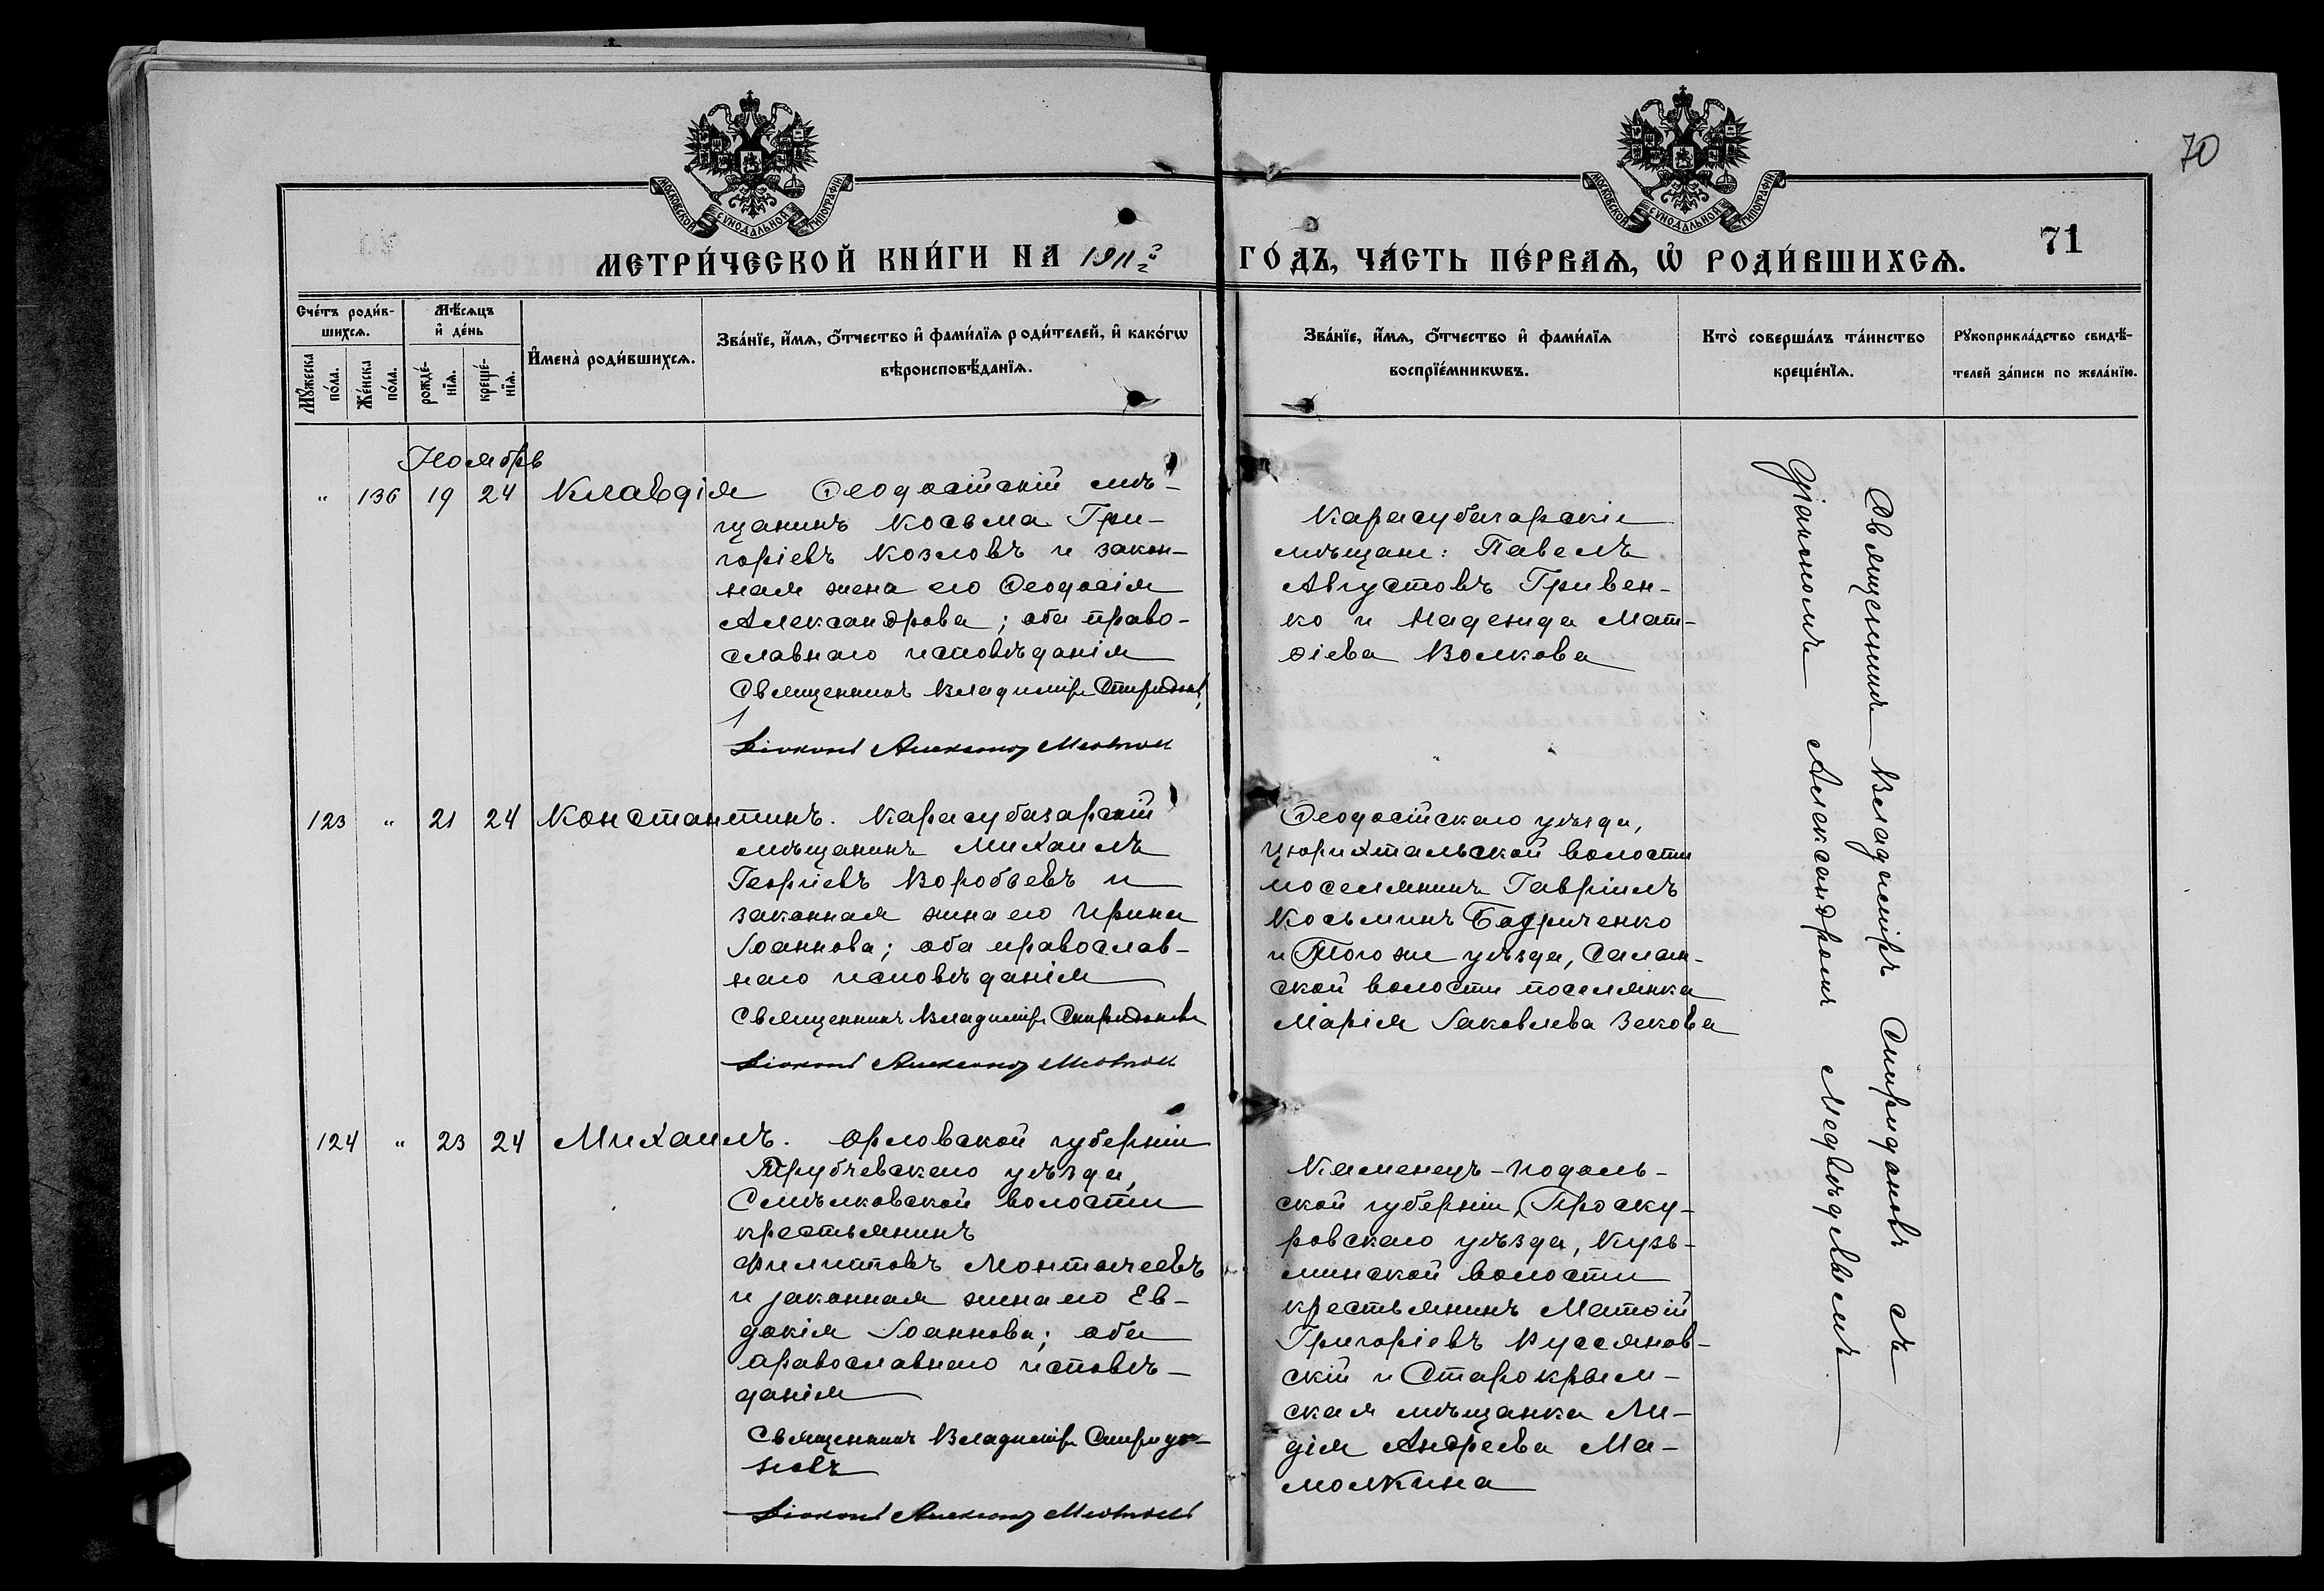 70
МОСКОВСКОЙ СѴНОДАЛЬНОЙ ТИПОГРАФІИ
МОСКОВСКОЙ СѴНОДАЛЬНОЙ ТИПОГРАФІИ
71
МЕТРИ́ЧЕСКОЙ КНИ́ГИ НА 1911 ГО́ДЪ, ЧА́СТЬ ПЕ́РВАѦ, Ѡ҆ РОДИ́ВШИХСѦ.
Сче́тъ роди́в-
шихсѧ.
Мꙋ́жеска по́ла.
Же́нска по́ла.
Мѣ́сѧцъ
и҆ де́нь
рожде́-
нїѧ.
креще́-
нїѧ.
И҆мена̀ роди́вшихсѧ.
Зва́нїе, и҆́мѧ, ѻ҆́тчество и҆ фами́лїѧ роди́телей, и҆ како́гѡ
вѣроисповѣ́данїѧ.
Зва́нїе, и҆́мѧ, ѻ҆́тчество и҆ фами́лїѧ
воспрїе́мникѡвъ.
Кто̀ соверша́лъ та́инство
креще́нїѧ.
Рꙋкоприкла́дство свидѣ́-
телей за́писи по жела́нїю.
Ноябрь
" 136 19 24 Клавдія Ѳеодосійскій мѣ-
щанинъ Косьма Гри-
горіевъ Козловъ и закон-
ная жена его Ѳеодосія
Александрова; оба право-
славнаго исповѣданія
Священникъ Владиміръ Спиридоновъ
Діаконъ Александръ
Карасубазарскіе
мѣщане: Павелъ
Августовъ Гривен-
ко и Надежда Мат-
ѳіева Волкова
123 " 21 24 Константинъ. Карасубазарскій
мѣщанинъ Михаилъ
Георгіевъ Воробьевъ и
законная жена его Ирина
Іоаннова; оба православ-
наго исповѣданія
Священникъ Владиміръ Спиридоновъ
Діаконъ Александръ
Ѳеодосійскаго уѣзда,
Цюрихтальской волости
поселянинъ Гавріилъ
Косьминъ
и Того же уѣзда, Салын-
ской волости поселянка
Марія Іаковлева Зекова
124 " 23 24 Михаилъ. Орловской губерніи
Трубчевскаго уѣзда,
Смѣлковской волости
крестьянинъ
Филипповъ
и законная жена его Ев-
докія Іоаннова; оба
православнаго исповѣ-
данія
Священникъ Владиміръ Спиридо-
новъ
Діаконъ Александръ
Каменецъ-Подоль-
ской губерніи, Проску-
ровскаго уѣзда, Кузь-
минской волости
крестьянинъ Матѳій
Григоріевъ Руссянов-
скій и Старокрым-
ская мѣщанка Ли-
дія Андреева Ма-
молкина
Священникъ Владиміръ Спиридоновъ съ
діакономъ Александромъ Медвѣдевымъ